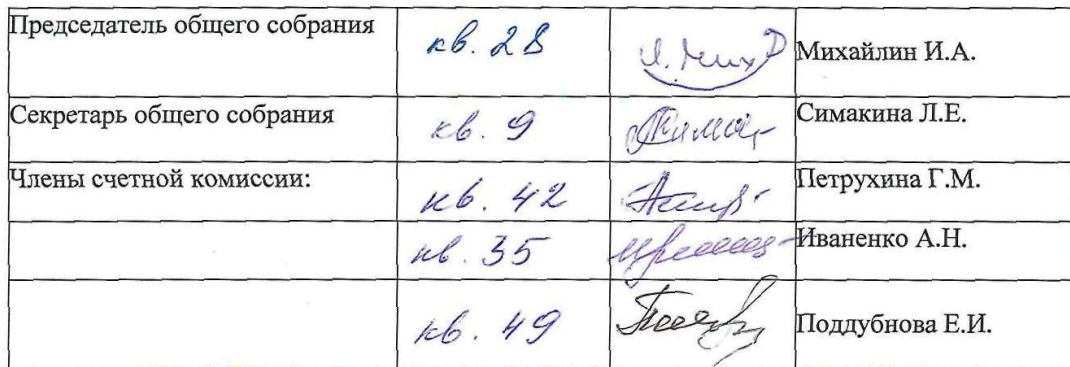 Председатель общего собрания кв. 28 Михайлин И.А.
Секретарь общего собрания кв. 9 Симакина Л.Е.
Члены счетной комиссии: кв. 42 Петрухина Г.М.
кв. 35 Иваненко А.Н.
кв. 49 Поддубнова Е.И.